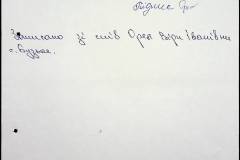 Підпис
Записано зі слів Орел Віри Іванівни
с. Будьки.